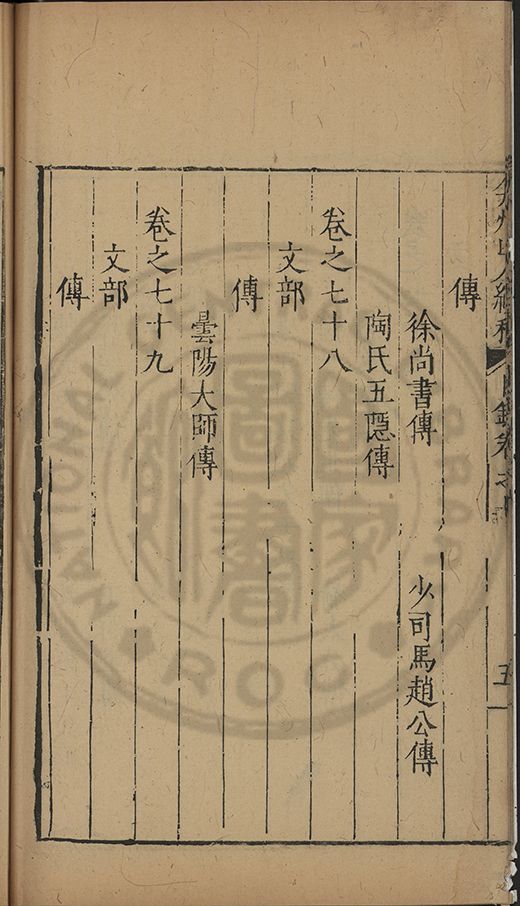 傳
徐尚書傳　少司馬趙公傳
陶氏五隱傳
卷之七十八
文部
傳
曇陽大師傳
卷之七十九
文部
傳
五
NATIONAL
ROC